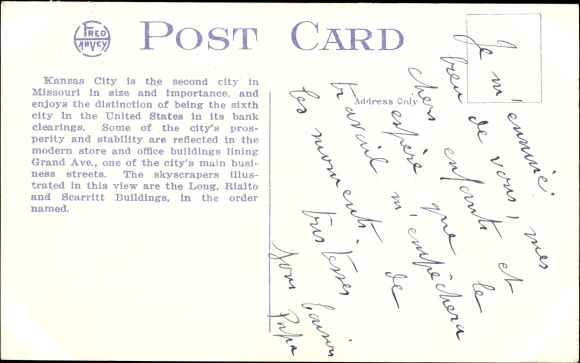 FRED HARVEY
POST CARD
Kansas City is the second city in
Missouri in size and importance, and
enjoys the distinction of being the sixth
city in the United States in its bank
clearings. Some of the city's pros-
perity and stability are reflected in the
modern store and office buildings lining
Grand Ave., one of the city's main busi-
ness streets. The skyscrapers illus-
trated in this view are the Long, Rialto
and Scarritt Buildings, in the order
named.
Address Only
Je m'ennuie
bien de vous, mes
chers enfants et
espère que le
travail m'empêchera
de
les moments tristesses
Papa